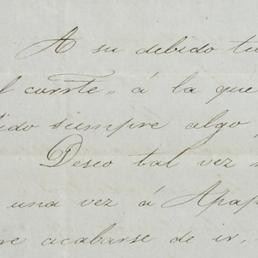 A su debido ti
l corrte, á la que
ido siempre algo
Deseo tal vez
una vez á Apap
re acabarse de ir,